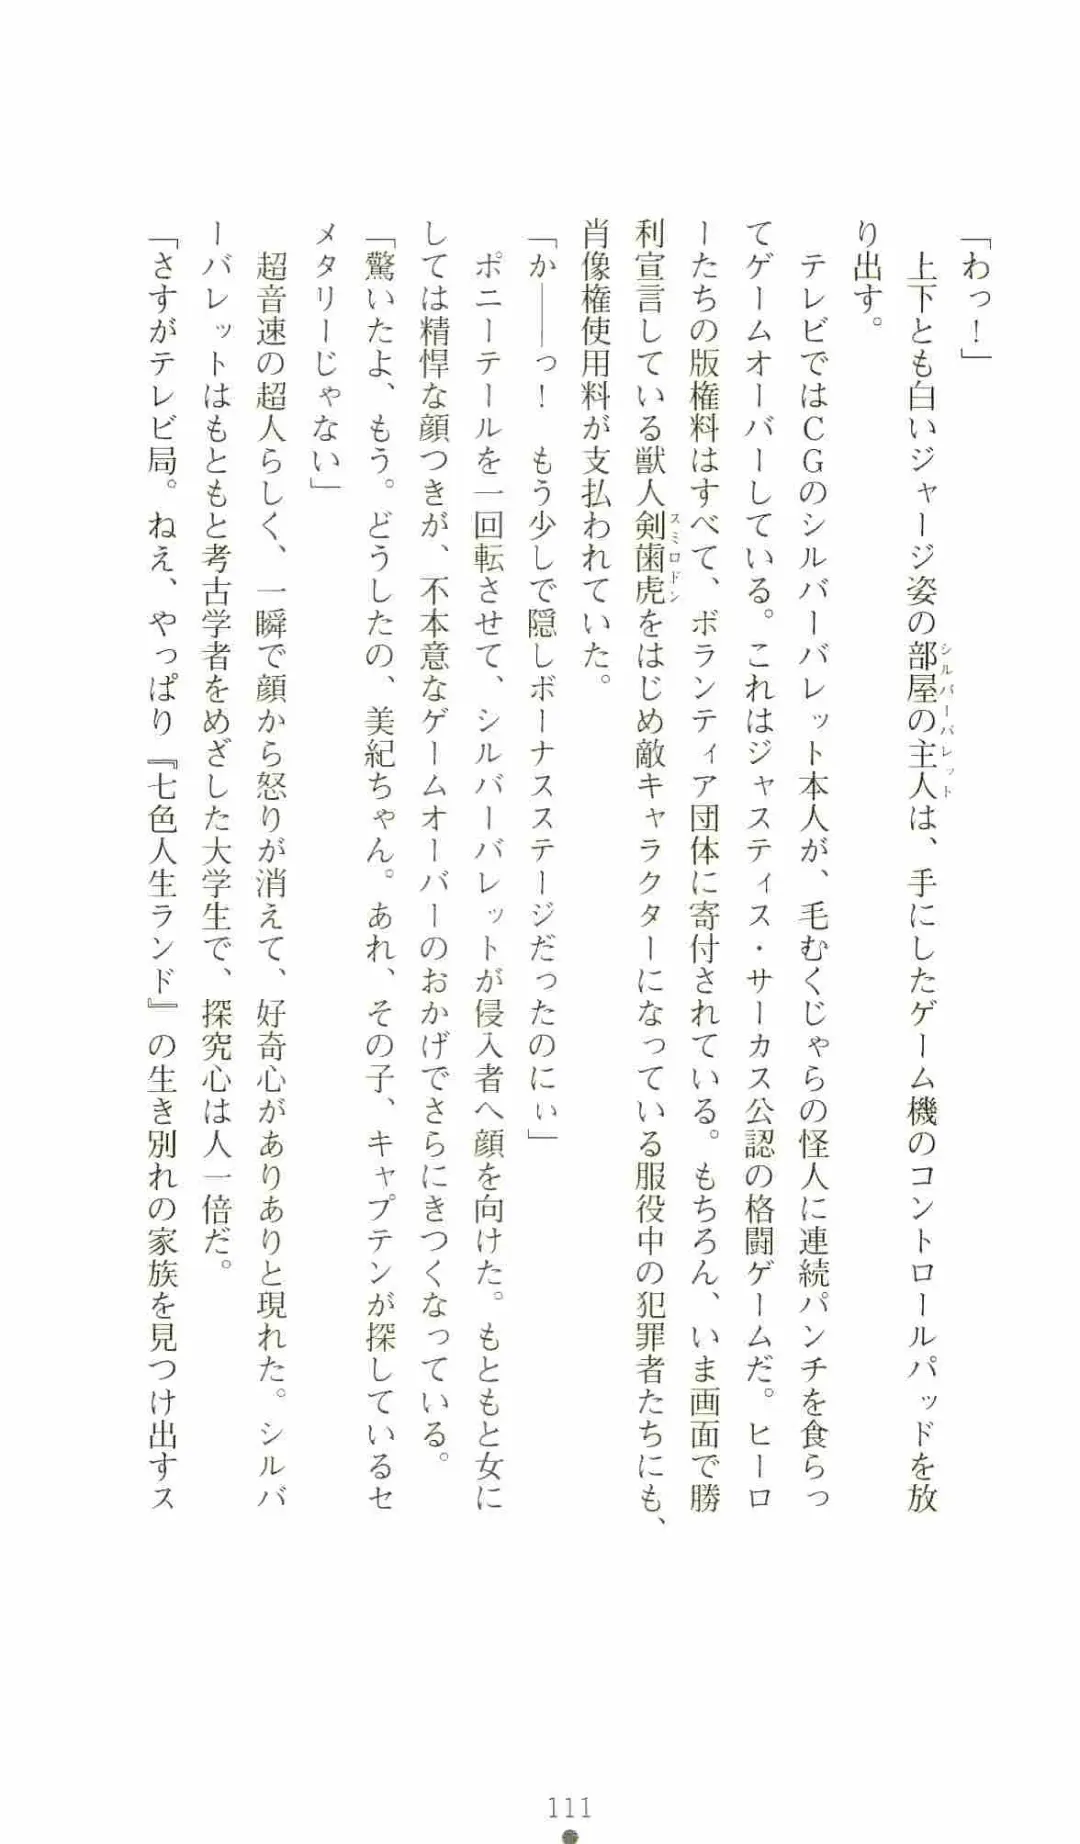 「わっ！」
　上下とも白いジャージ姿の部屋の主人は、手にしたゲーム機のコントロールパッドを放
シルバーバレット
り出す。
　テレビではＣＧのシルバーバレット本人が、毛むくじゃらの怪人に連続パンチを食らっ
てゲームオーバーしている。これはジャスティス・サーカス公認の格闘ゲームだ。ヒーロ
ーたちの版権料はすべて、ボランティア団体に寄付されている。もちろん、いま画面で勝
利宣言している獣人剣歯虎をはじめ敵キャラクターになっている服役中の犯罪者たちにも、
スミロドン
肖像権使用料が支払われていた。
「か――っ！　もう少しで隠しボーナスステージだったのにぃ」
　ポニーテールを一回転させて、シルバーバレットが侵入者へ顔を向けた。もともと女に
しては精悍な顔つきが、不本意なゲームオーバーのおかげでさらにきつくなっている。
「驚いたよ、もう。どうしたの、美紀ちゃん。あれ、その子、キャプテンが探しているセ
メタリーじゃない」
　超音速の超人らしく、一瞬で顔から怒りが消えて、好奇心がありありと現れた。シルバ
ーバレットはもともと考古学者をめざした大学生で、探究心は人一倍だ。
「さすがテレビ局。ねえ、やっぱり『七色人生ランド』の生き別れの家族を見つけ出すス
111